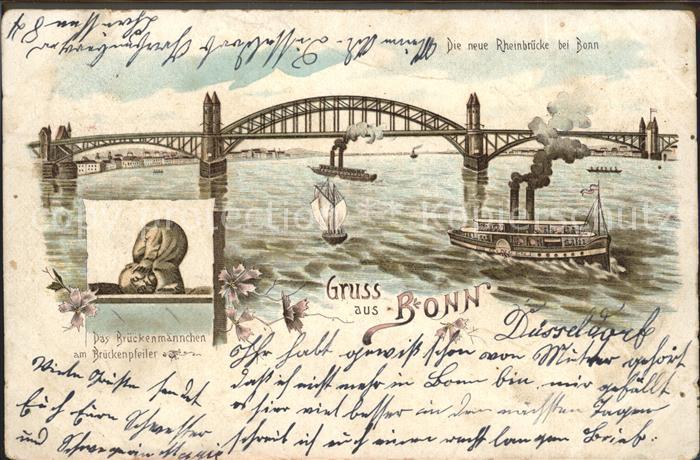 Die neue Rheinbrücke bei Bonn
copy protection Copyright Kulturschutz
Gruss
aus
BONN
Das Brückenmännchen
am Brückenpfeiler
Düsseldorf
Ihr habt gewiß schon von Mutter gehört
daß ich nicht mehr in Bonn bin, mir gefällt
es hier viel besser in den nächsten Tagen
schreib ich euch einen recht langen Brief.
Viele Grüße sendet
Euch Eure Schwester
und Schwägerin